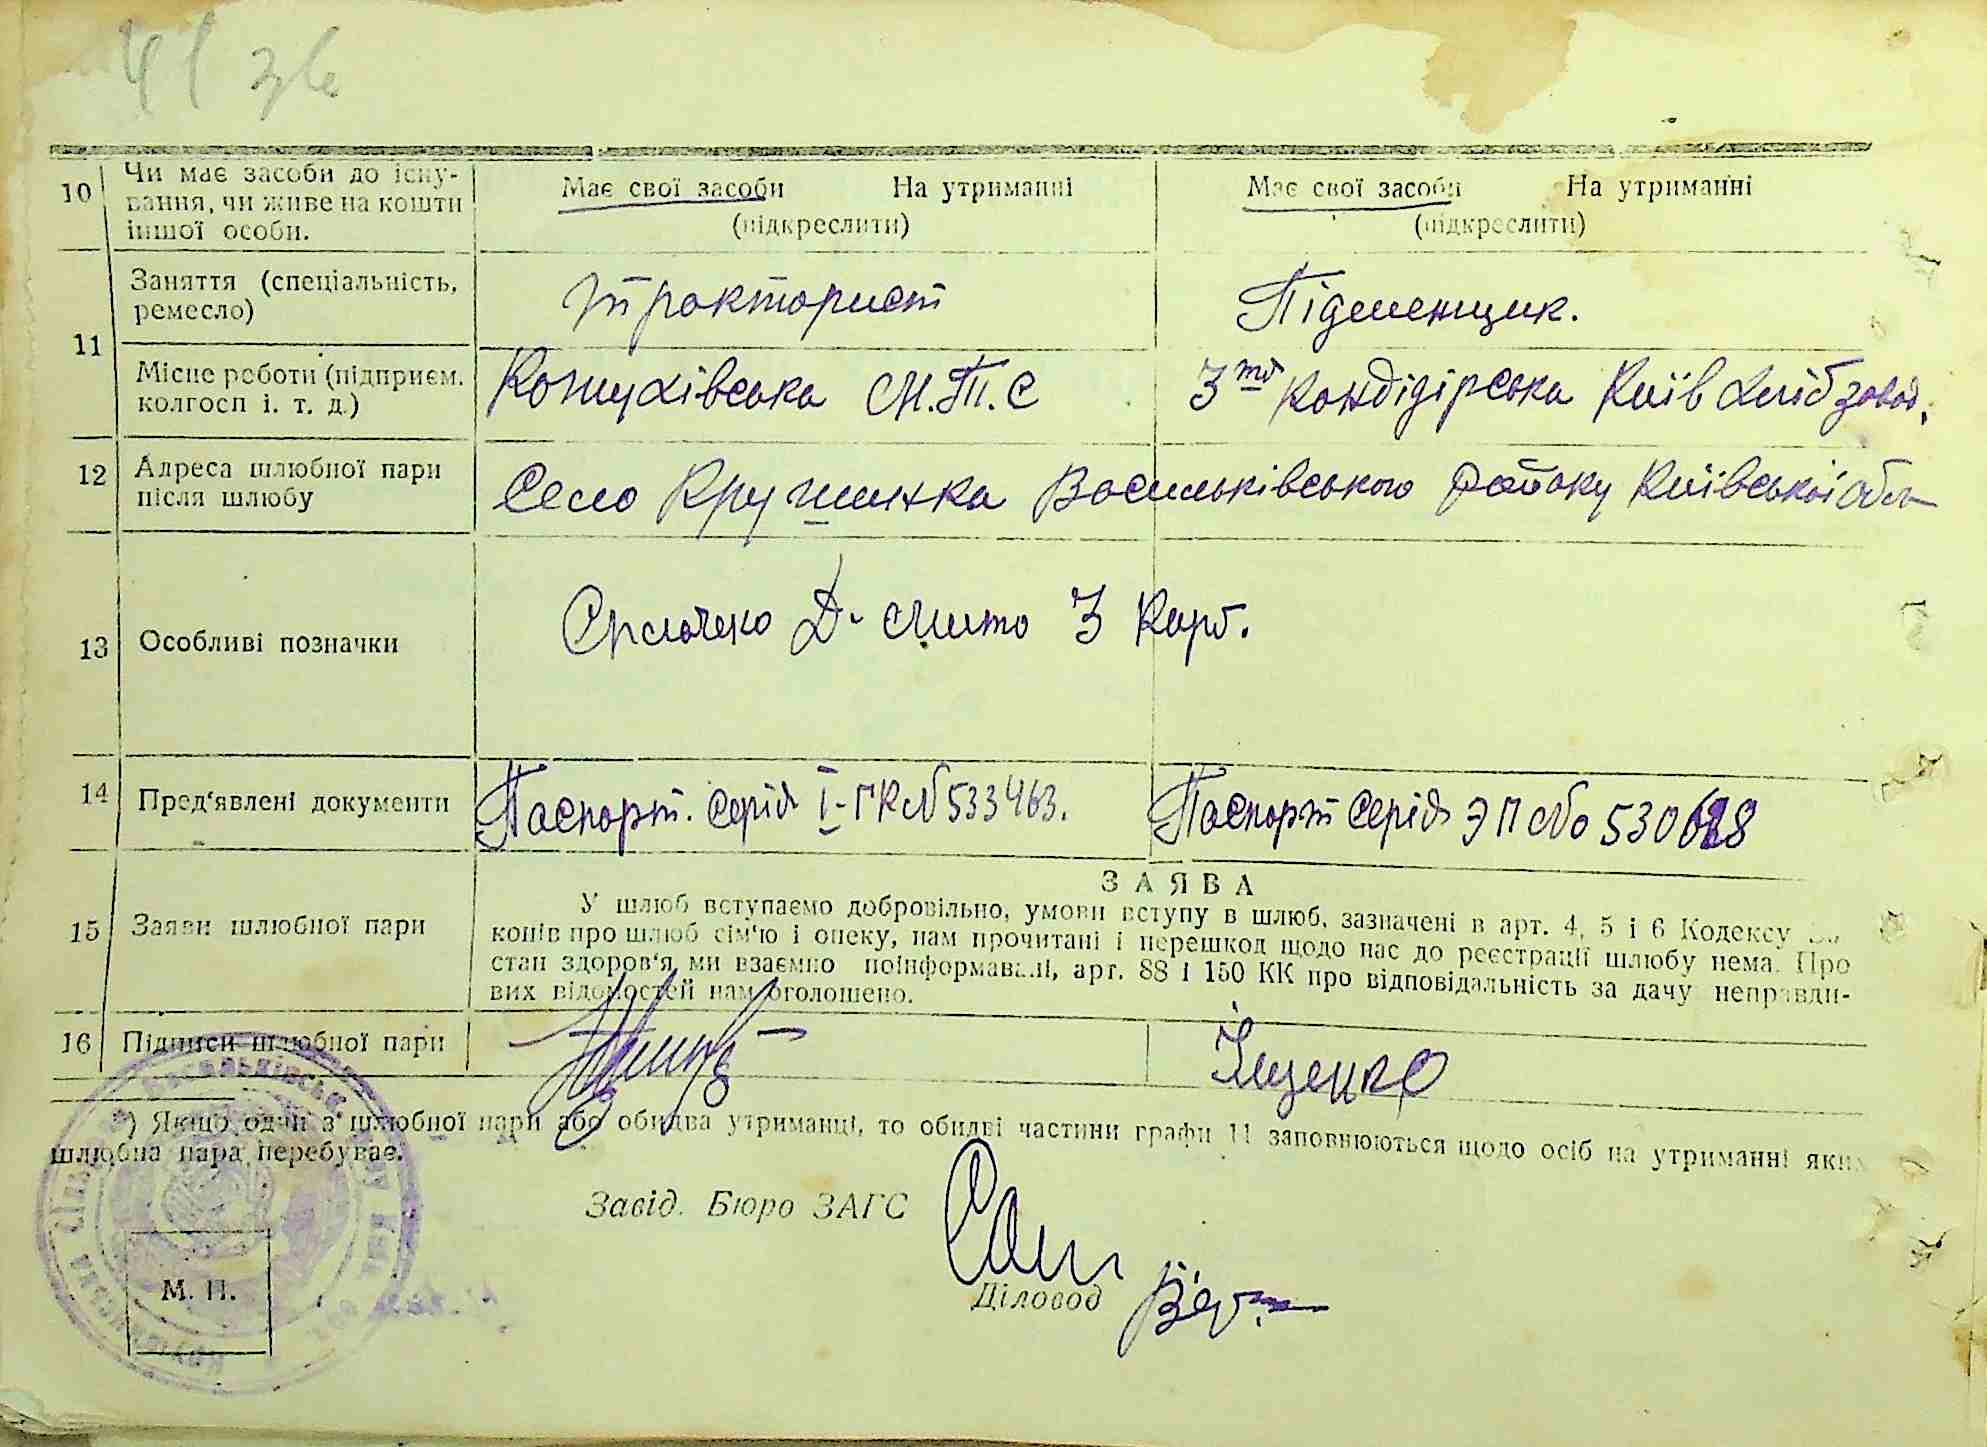 41 зв
10 Чи має засоби до існу-
вання, чи живе на кошти
іншої особи.
Має свої засоби На утриманні
(підкреслити)
Має свої засоби На утриманні
(підкреслити)
11 Заняття (спеціальність,
ремесло)
тракторист
Підменщик.
Місце роботи (підприєм.
колгосп і. т. д.)
Кожухівська М.Т.С
3тя Кондідірська Київ Хлібзавод.
12 Адреса шлюбної пари
після шлюбу
Село Крушинка Васильківського району Київської обл
13 Особливі позначки
Сплочено Д. мито 3 карб.
14 Пред'явлені документи
Паспорт. Серія I-ГК № 533463.
Паспорт Серія ЭП № 530628
15 Заяви шлюбної пари
ЗАЯВА
У шлюб вступаємо добровільно, умови вступу в шлюб, зазначені в арт. 4, 5 і 6 Кодексу
конів про шлюб сім'ю і опеку, нам прочитані і перешкод щодо нас до реєстрації шлюбу нема. Про
стан здоров'я ми взаємно поінформавані, арт. 88 і 150 КК про відповідальність за дачу неправди-
вих відомостей нам оголошено.
16 Підписи шлюбної пари
Іщенко
*) Якщо один з шлюбної пари або обидва утриманці, то обидві частини графи 11 заповнюються щодо осіб на утриманні яких
шлюбна пара перебуває.
Завід. Бюро ЗАГС
Діловод
М. П.